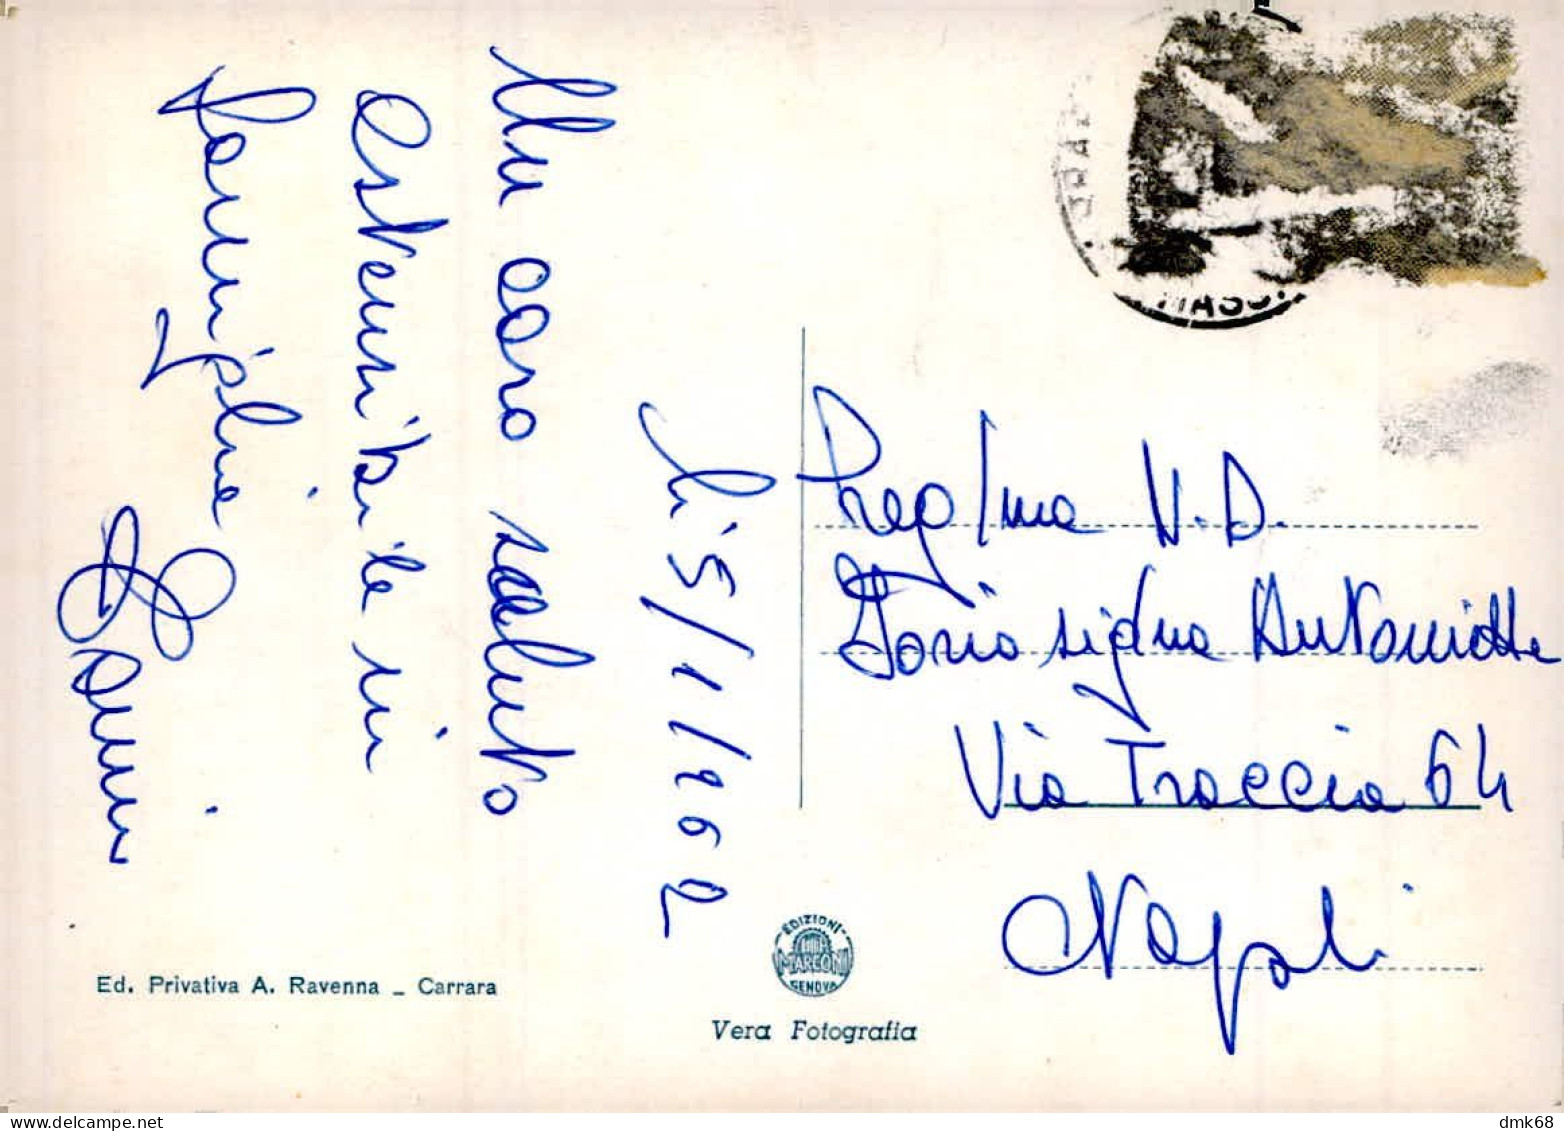 Un caro saluto
estensibile in
famiglia
Gianni
li 5/1/1962
Preg/ma N.D.
Doria signa Antonietta
Via Traccia 64
Napoli
MASS
EDIZIONI
MARCONI
GENOVA
Ed. Privativa A. Ravenna _ Carrara
Vera Fotografia
dmk68